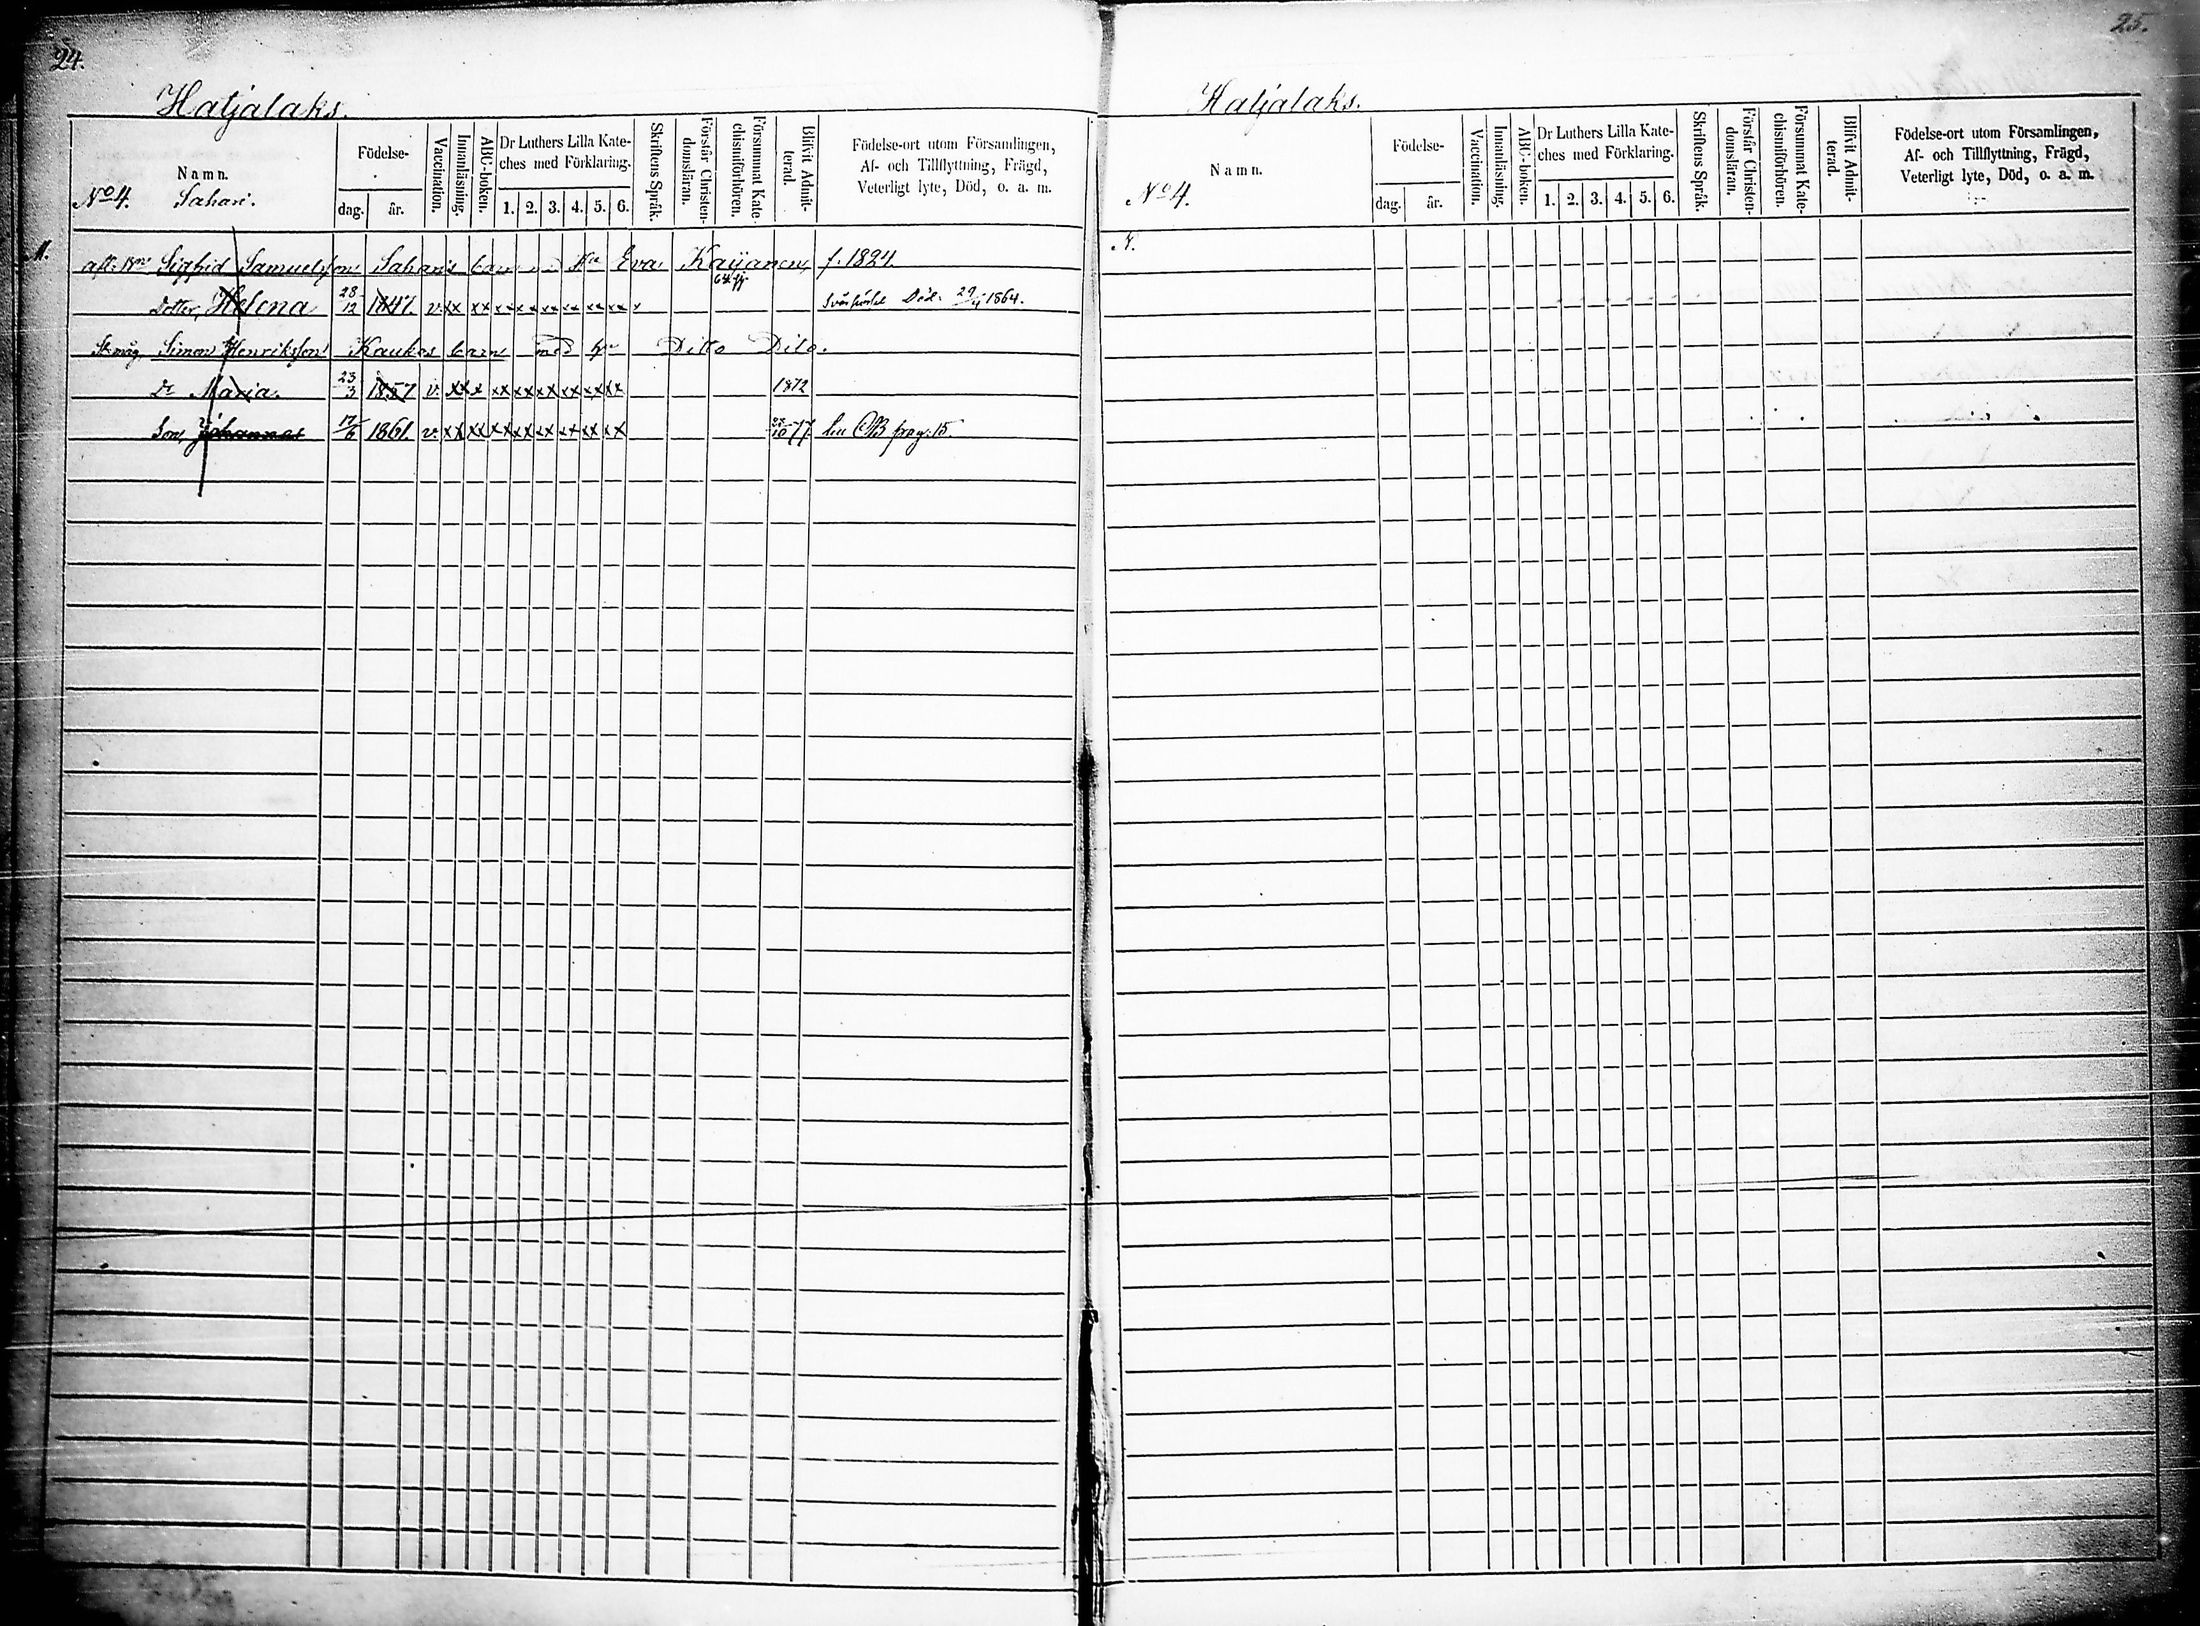 24.
Hatjalaks.
Namn.
Födelse-
dag.
år.
Vaccination.
Innanläsning.
ABC-boken.
Dr Luthers Lilla Kate-
ches med Förklaring.
1. 2. 3. 4. 5. 6.
Skriftens Språk.
Förstår Christen-
domsläran.
Försummat Kate-
chismiförhören.
Blifvit Admit-
terad.
Födelse-ort utom Församlingen,
Af- och Tillflyttning, Frägd,
Veterligt lyte, Död, o. a. m.
No 4. Sahari.
M.
afl. Bn Sigfrid Samuelsson Sahari's barn med Eva Kaijanen, f. 1824
Dotter, Helena 28/12 1847. v. xx xx xx xx xx xx xx xx Död. 1864.
Simon Henriksson Kaukos barn med Ditto Dito.
Dr Maria. 23/3 1857 v. xx x xx xx xx xx xx xx 1872
Son, Johannes 17/6 1861. v. xx xx xx xx xx xx xx xx 77. pag. 15.
25.
Hatjalaks.
Namn.
No 4.
Födelse-
dag.
år.
Vaccination.
Innanläsning.
ABC-boken.
Dr Luthers Lilla Kate-
ches med Förklaring.
1. 2. 3. 4. 5. 6.
Skriftens Språk.
Förstår Christen-
domsläran.
Försummat Kate-
chismiförhören.
Blifvit Admit-
terad.
Födelse-ort utom Församlingen,
Af- och Tillflyttning, Frägd,
Veterligt lyte, Död, o. a. m.